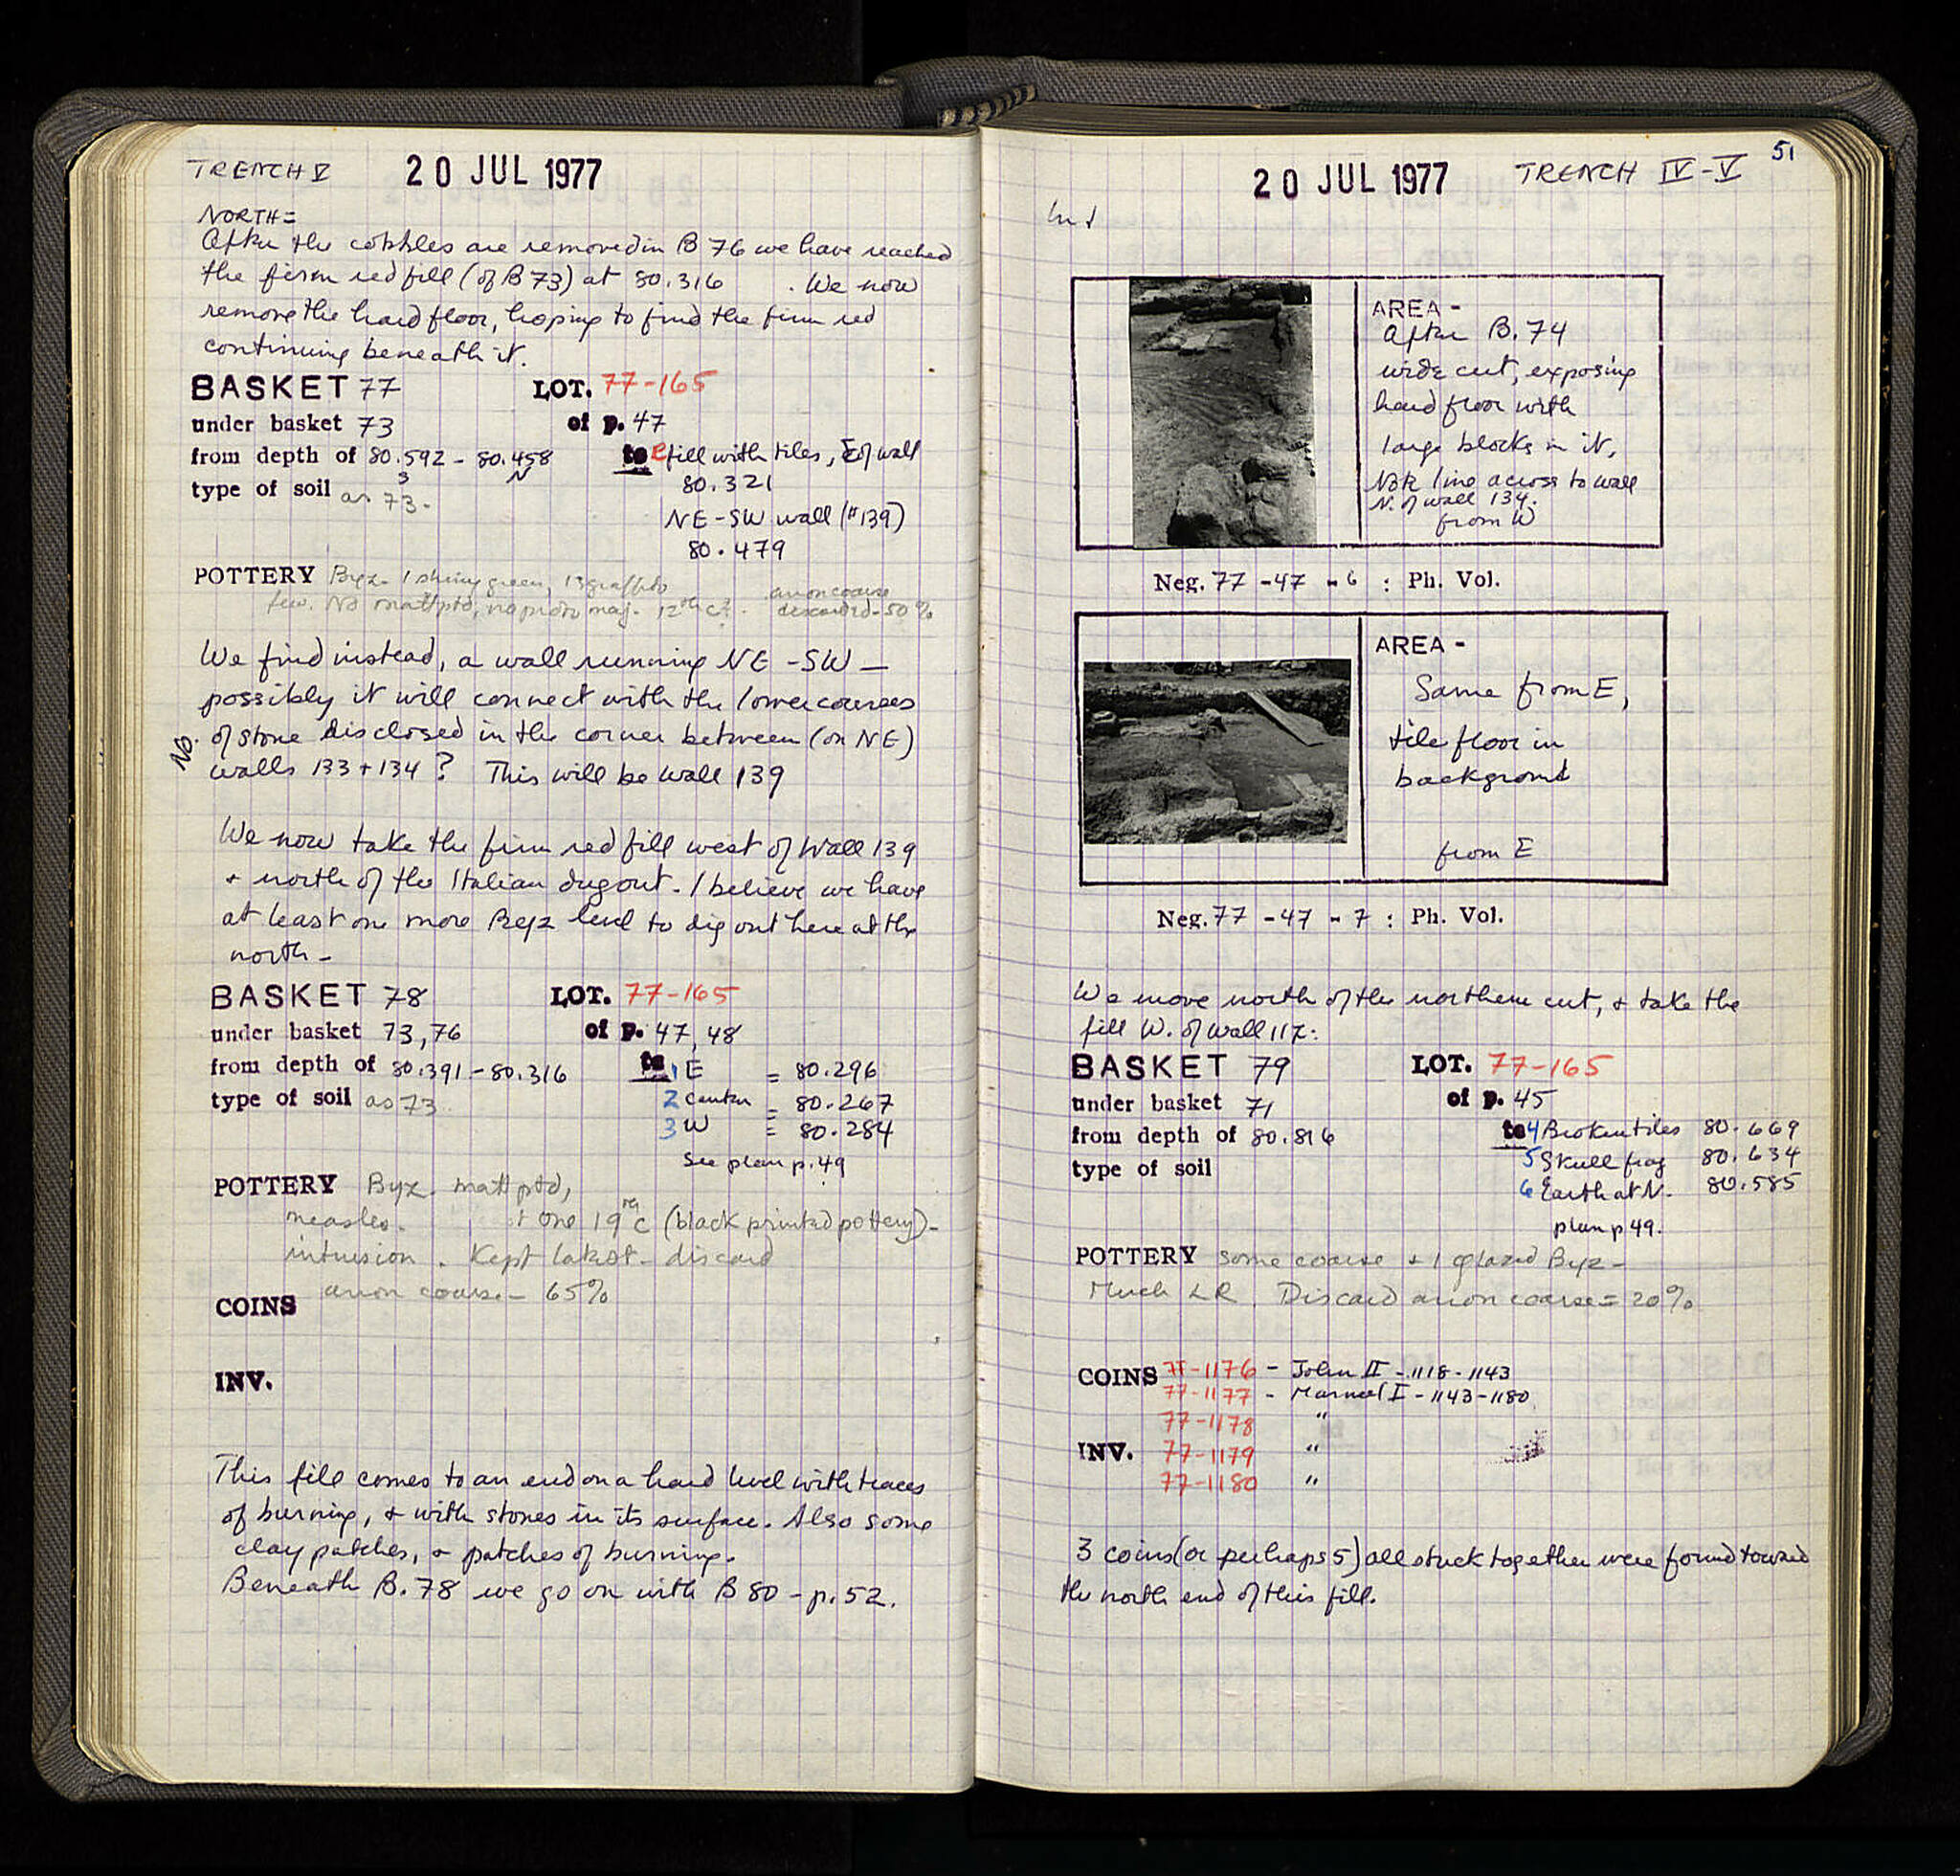 TRENCH V 20 JUL 1977
NORTH =
After the cobbles are removed in B 76 we have reached
the firm red fill (of B 73) at 80.316 . We now
remove the hard floor, hoping to find the firm red
continuing beneath it.
BASKET 77 LOT. 77-165
under basket 73 of p. 47
from depth of 80.592 - 80.458 to fill with tiles, E of wall
S N 80.321
type of soil as 73.
NE-SW wall (#139)
80.479
POTTERY Byz. 1 shiny green, 1 sgraffito
few. No matt ptd, no proto maj. 12th c. anon coarse
discard - 50%
We find instead, a wall running NE-SW —
possibly it will connect with the lower courses
NB. of stone disclosed in the corner between (on NE)
walls 133 + 134? This will be wall 139
We now take the firm red fill west of Wall 139
+ north of the Italian dugout. I believe we have
at least one more Byz level to dig out here at the
north -
BASKET 78 LOT. 77-165
under basket 73, 76 of p. 47, 48
from depth of 80.391 - 80.316 to 1 E = 80.296
type of soil as 73 2 center = 80.267
3 W = 80.284
See plan p. 49
POTTERY Byz. matt ptd,
measles. + one 19th c (black printed pottery) -
intrusion. Kept latest - discard
anon coarse - 65%
COINS
INV.
This fill comes to an end on a hard level with traces
of burning, + with stones in its surface. Also some
clay patches, + patches of burning.
Beneath B. 78 we go on with B 80 - p. 52.
51
20 JUL 1977 TRENCH IV-V
AREA -
After B. 74
wide cut, exposing
hard floor with
large blocks in it,
Note line across to wall
N. of wall 134.
from W
Neg. 77 - 47 - 6 : Ph. Vol.
AREA -
Same from E,
tile floor in
background
from E
Neg. 77 - 47 - 7 : Ph. Vol.
We move north of the northern cut, + take the
fill W. of wall 117:
BASKET 79 LOT. 77-165
under basket 71 of p. 45
from depth of 80.816 to 4 Broken tiles 80.669
type of soil 5 Skull frag 80.634
6 Earth at N. 80.585
plan p 49.
POTTERY some coarse + 1 glazed Byz -
Much LR. Discard anon coarse = 20%
COINS 77-1176 - John II - 1118-1143
77-1177 - Manuel I - 1143-1180
77-1178 "
INV. 77-1179 "
77-1180 "
3 coins (or perhaps 5) all stuck together were found toward
the north end of this fill.